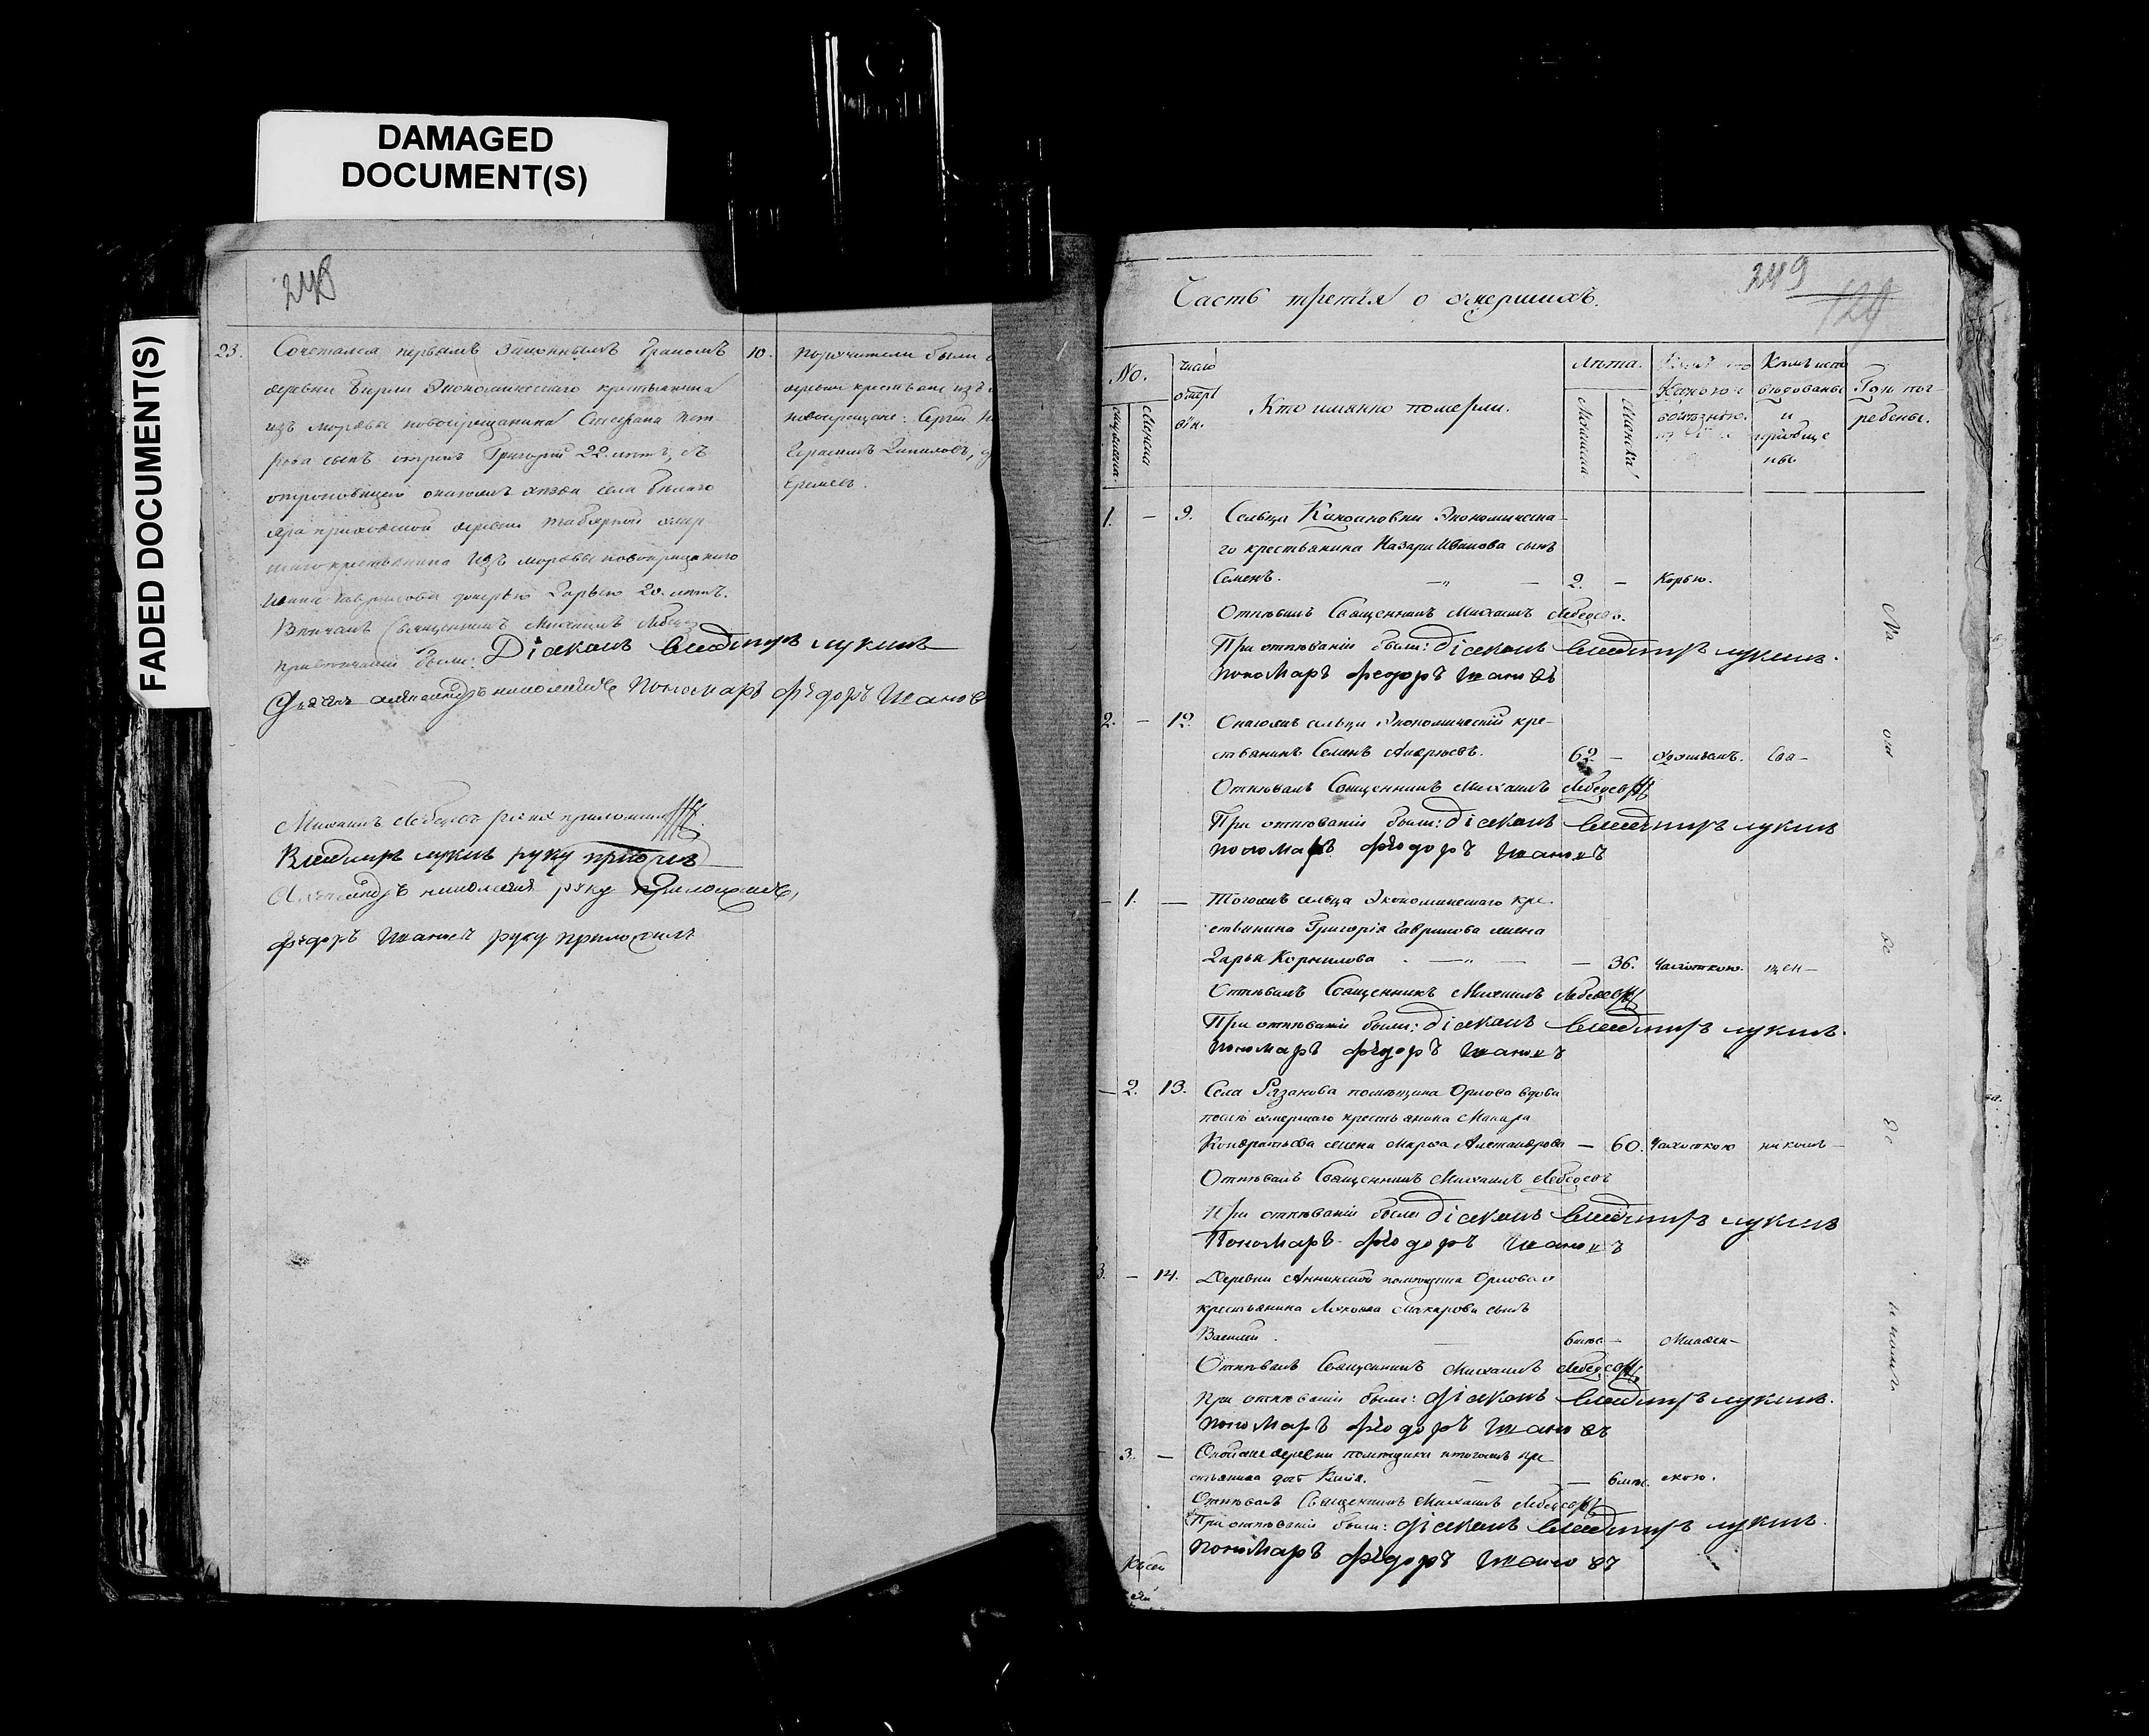 DAMAGED
DOCUMENT(S)
FADED DOCUMENT(S)
248
23. Сочетался первымъ Законнымъ бракомъ
деревни Бирли Экономическаго крестьянина
изъ мордвы новокрещанина Степана Пет
рова сынъ Григорий 22. лѣтъ, съ
села Бѣлаго
яра приходской деревни умер
шаго крестьянина Изъ мордвы новокрещенаго
Ивана Гаврилова дочерью Дарьею 20. лѣтъ.
Венчалъ Священникъ Михаилъ Лебедев
При венчании были: Діаконъ Владимиръ Лукинъ
Александръ Пономарь Фѣдоръ Ивановъ
10. Поручители были
деревни крестьяне изъ
новокрещане: Сергей
Герасимъ Даниловъ,
Еремеев.
Михаилъ Лебедевъ руку приложилъ
Владимиръ Лукинъ руку приложилъ
Александръ руку приложилъ,
Фѣдоръ Ивановъ руку приложилъ
249
129
Часть третія о умершихъ.
No.
число
умерт
вій.
Кто имянно померли.
Лѣта.
Мужеска.
Женска
Кемъ испо
вѣдованы
и
приобще
ны
Гдѣ пог-
ребены.
1. — 9. Сельца Кандаковки Экономическа-
го крестьянина Назара Иванова сынъ
Семенъ. 2. — Корью.
Отпѣвалъ Священникъ Михаилъ Лебедевъ.
При отпѣваніи были: Діаконъ Владимиръ Лукинъ.
Пономарь Федоръ Ивановъ
2. — 12. Онагожъ сельца Экономический кре-
стьянинъ Семенъ Андреевъ. 62. — Свя-
Отпѣвалъ Священникъ Михаилъ Лебедевъ
При отпѣваніи были: Діаконъ Владимиръ Лукинъ
Пономарь Фѣодоръ Ивановъ
— 1. — Тогожъ сельца Экономическаго кре-
стьянина Григорія Гаврилова жена
Дарья Корнилова — 36. Чахоткою. щен-
Отпѣвалъ Священникъ Михаилъ Лебедевъ
При отпѣваніи были: Діаконъ Владимиръ Лукинъ.
Пономарь Фѣдоръ Ивановъ
— 2. 13. Села Рязанова помѣщика Орлова вдова
послѣ умершаго крестьянина Макара
Кондратьева жена Марфа Александрова — 60. Чахоткою никомъ
Отпѣвалъ Священникъ Михаилъ Лебедевъ
При отпѣваніи были Діаконъ Владимиръ Лукинъ
Пономарь Фѣодоръ Ивановъ
3. — 14. Деревни Аннинской помѣщика Орлова
крестьянина Макарова сынъ
Василій. — Младен-
Отпѣвалъ Священникъ Михаилъ Лебедевъ
При отпѣваніи были: Діаконъ Владимиръ Лукинъ.
Пономарь Фѣодоръ Ивановъ
— 3. — деревни помѣщика кре
стьянина дочь — скою.
Отпѣвалъ Священникъ Михаилъ Лебедевъ
При отпѣваніи были: Діаконъ Владимиръ Лукинъ.
Пономарь Фѣдоръ Ивановъ